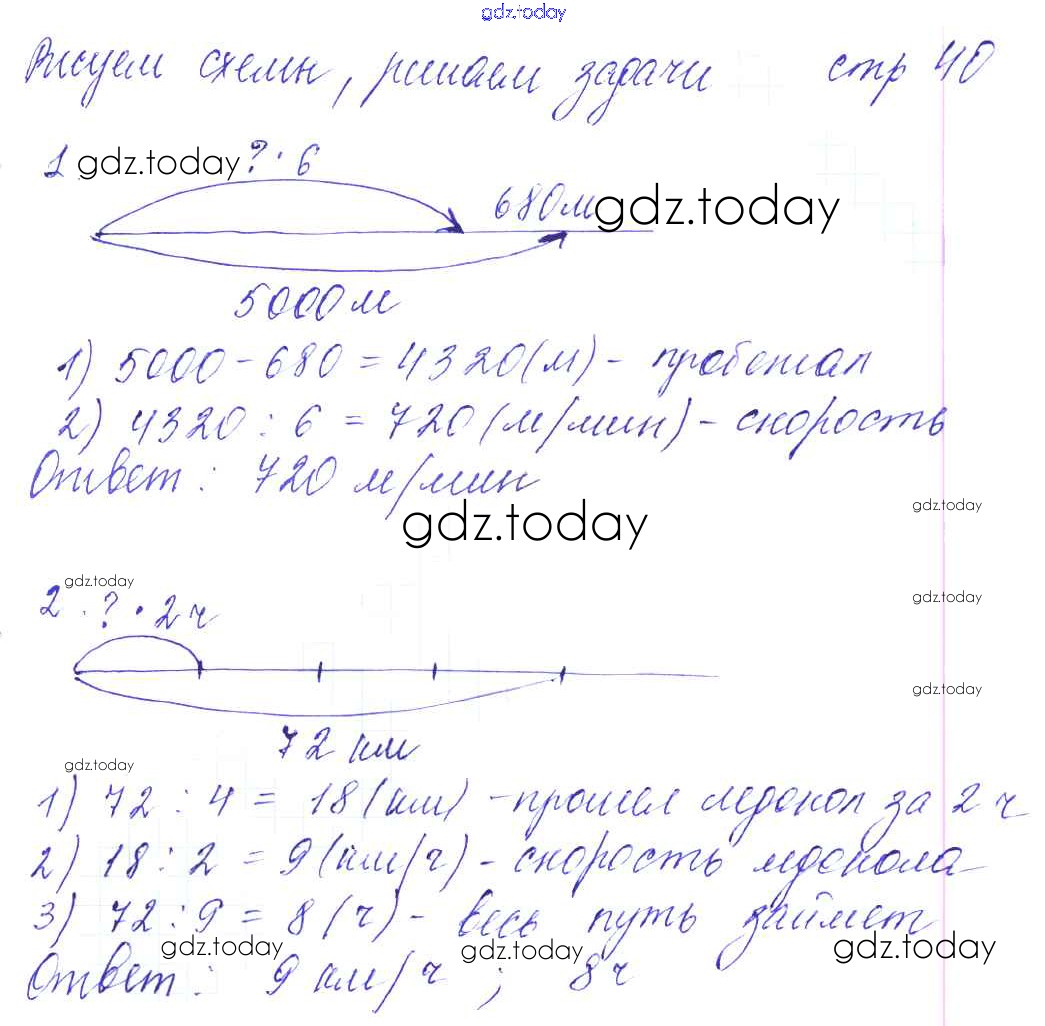 gdz.today
Рисуем схемы, решаем задачи стр 40
1 gdz.today ? · 6
680м gdz.today
5000м
1) 5000 - 680 = 4320 (м) - пробежал
2) 4320 : 6 = 720 (м/мин) - скорость
Ответ: 720 м/мин
gdz.today gdz.today
gdz.today gdz.today
2 ? · 2 ч
gdz.today
72 км
gdz.today
1) 72 : 4 = 18 (км) - прошел ледокол за 2 ч
2) 18 : 2 = 9 (км/ч) - скорость ледокола
3) 72 : 9 = 8 (ч) - весь путь займет
gdz.today gdz.today gdz.today
Ответ: 9 км/ч ; 8ч